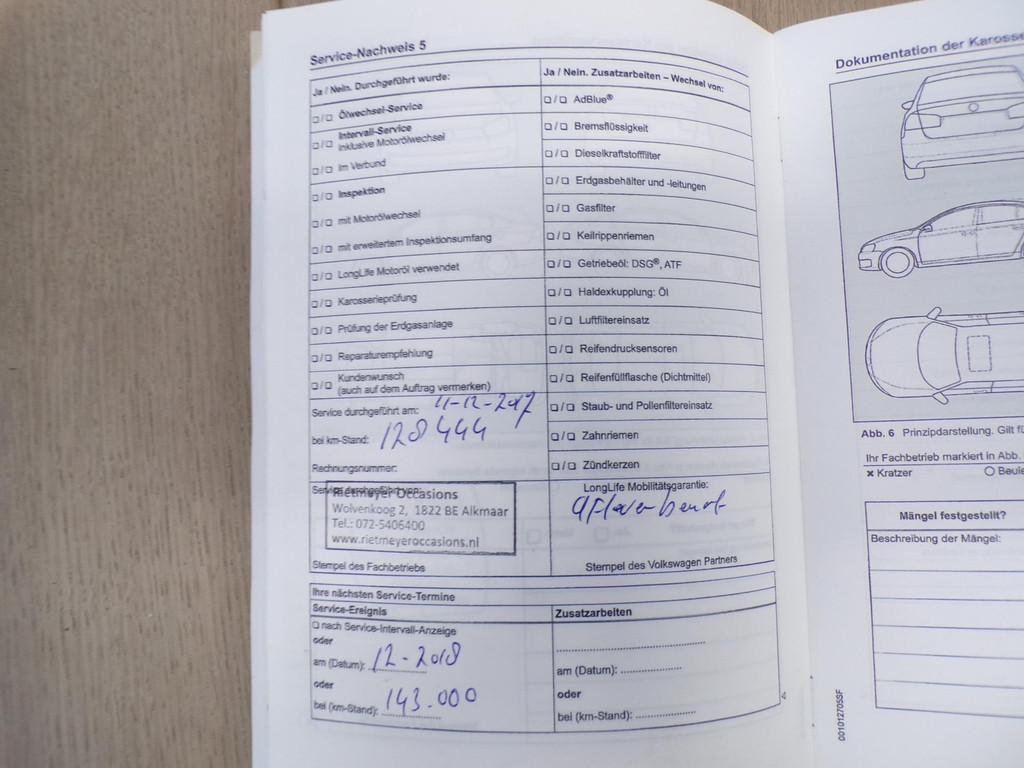 Service-Nachweis 5
Ja / Nein. Durchgeführt wurde:
❑/❑ Ölwechsel-Service
❑/❑ Intervall-Service
inklusive Motorölwechsel
❑/❑ im Verbund
❑/❑ Inspektion
❑/❑ mit Motorölwechsel
❑/❑ mit erweitertem Inspektionsumfang
❑/❑ LongLife Motoröl verwendet
❑/❑ Karosserieprüfung
❑/❑ Prüfung der Erdgasanlage
❑/❑ Reparaturempfehlung
❑/❑ Kundenwunsch
(auch auf dem Auftrag vermerken)
Service durchgeführt am: 11-12-2017
bei km-Stand: 128444
Rechnungsnummer:
Service durchgeführt von:
Rietmeyer Occasions
Wolvenkoog 2, 1822 BE Alkmaar
Tel.: 072-5406400
www.rietmeyeroccasions.nl
Stempel des Fachbetriebs
Ja / Nein. Zusatzarbeiten – Wechsel von:
❑/❑ AdBlue®
❑/❑ Bremsflüssigkeit
❑/❑ Dieselkraftstofffilter
❑/❑ Erdgasbehälter und -leitungen
❑/❑ Gasfilter
❑/❑ Keilrippenriemen
❑/❑ Getriebeöl: DSG®, ATF
❑/❑ Haldexkupplung: Öl
❑/❑ Luftfiltereinsatz
❑/❑ Reifendrucksensoren
❑/❑ Reifenfüllflasche (Dichtmittel)
❑/❑ Staub- und Pollenfiltereinsatz
❑/❑ Zahnriemen
❑/❑ Zündkerzen
LongLife Mobilitätsgarantie:
afleverbeurt
Stempel des Volkswagen Partners
Ihre nächsten Service-Termine
Service-Ereignis
❑ nach Service-Intervall-Anzeige
oder
am (Datum): 12-2018
oder
bei (km-Stand): 143.000
Zusatzarbeiten
am (Datum):
oder
bei (km-Stand):
4
Dokumentation der Karosse
Abb. 6 Prinzipdarstellung. Gilt fü
Ihr Fachbetrieb markiert in Abb.
× Kratzer ○ Beule
Mängel festgestellt?
Beschreibung der Mängel:
001012705SF